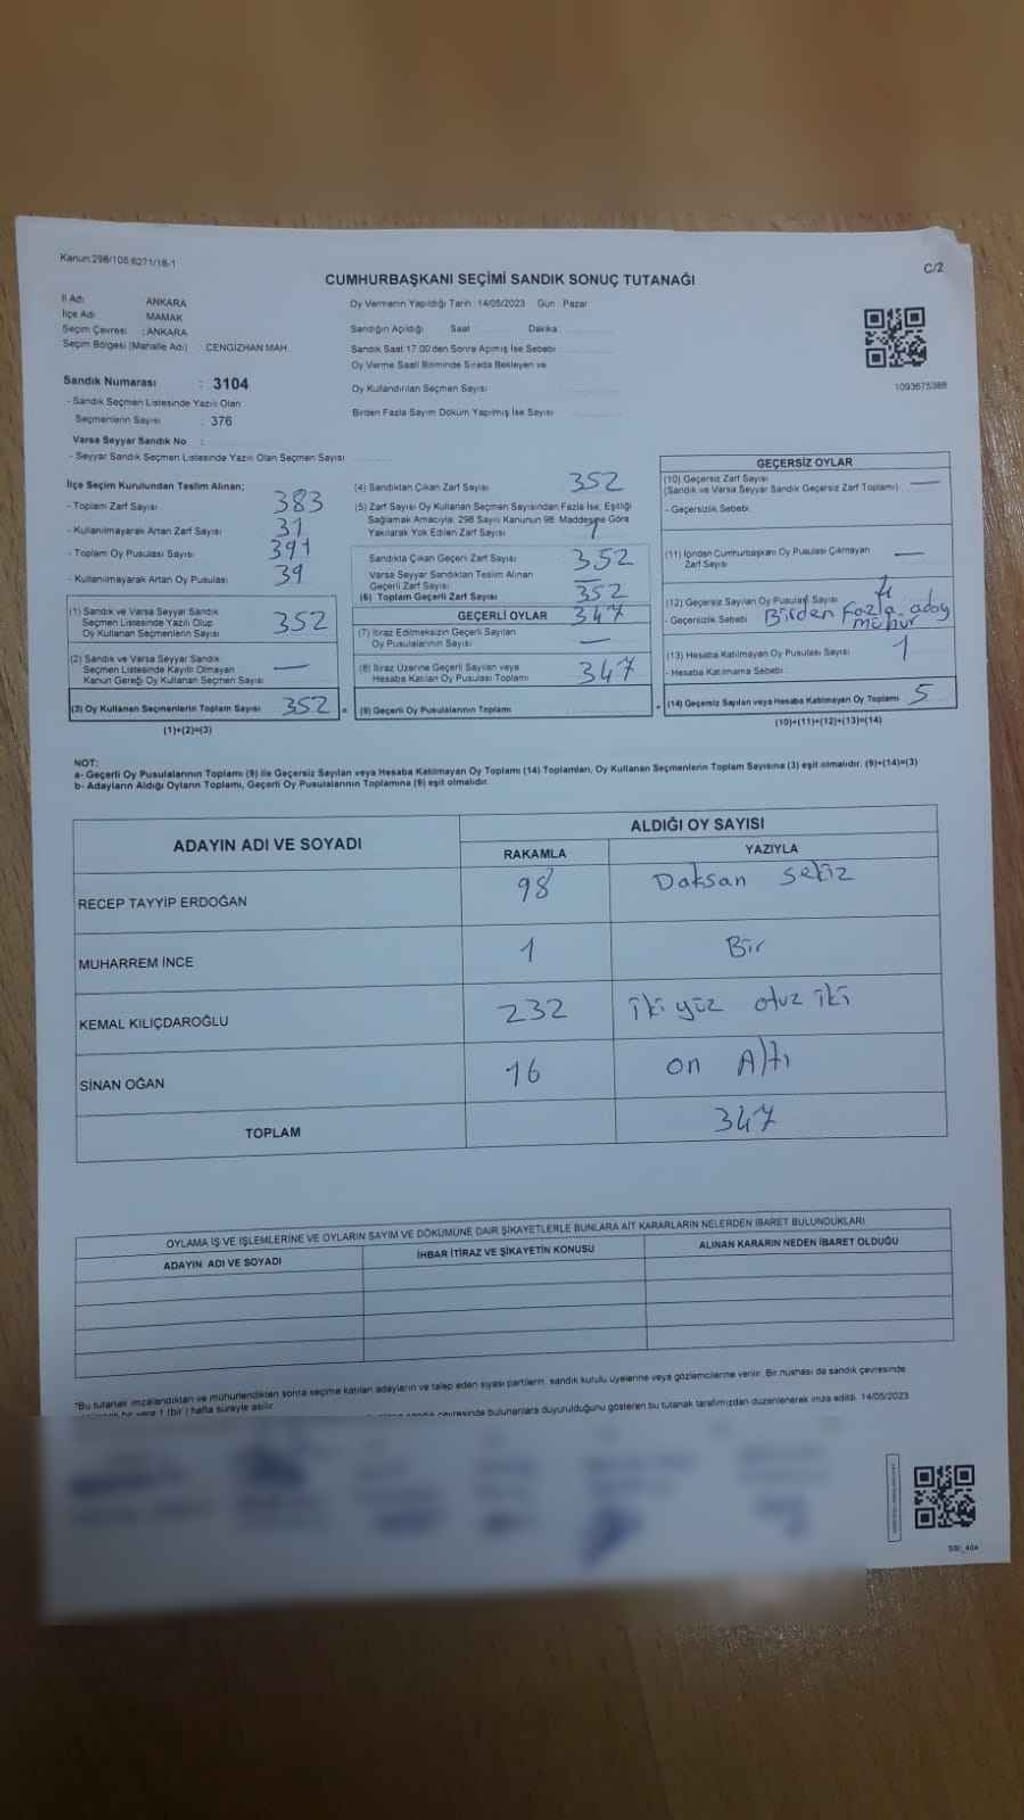 Kanun:298/105 6271/18-1
C/2
CUMHURBAŞKANI SEÇİMİ SANDIK SONUÇ TUTANAĞI
İl Adı ANKARA
İlçe Adı MAMAK
Seçim Çevresi : ANKARA
Seçim Bölgesi (Mahalle Adı) CENGİZHAN MAH.
Sandık Numarası : 3104
- Sandık Seçmen Listesinde Yazılı Olan
Seçmenlerin Sayısı : 376
Varsa Seyyar Sandık No :
- Seyyar Sandık Seçmen Listesinde Yazılı Olan Seçmen Sayısı
Oy Vermenin Yapıldığı Tarih : 14/05/2023 Gün : Pazar
Sandığın Açıldığı Saat Dakika
Sandık Saat 17.00'den Sonra Açılmış İse Sebebi
Oy Verme Saati Bitiminde Sırada Bekleyen ve
Oy Kullandırılan Seçmen Sayısı
Birden Fazla Sayım Döküm Yapılmış İse Sayısı
1093675388
İlçe Seçim Kurulundan Teslim Alınan;
- Toplam Zarf Sayısı 383
- Kullanılmayarak Artan Zarf Sayısı 31
- Toplam Oy Pusulası Sayısı 391
- Kullanılmayarak Artan Oy Pusulası 39
(1) Sandık ve Varsa Seyyar Sandık
Seçmen Listesinde Yazılı Olup
Oy Kullanan Seçmenlerin Sayısı 352
(2) Sandık ve Varsa Seyyar Sandık
Seçmen Listesinde Kayıtlı Olmayan
Kanun Gereği Oy Kullanan Seçmen Sayısı —
(3) Oy Kullanan Seçmenlerin Toplam Sayısı 352 =
(1)+(2)=(3)
(4) Sandıktan Çıkan Zarf Sayısı 352
(5) Zarf Sayısı Oy Kullanan Seçmen Sayısından Fazla İse, Eşitliği
Sağlamak Amacıyla 298 Sayılı Kanunun 98. Maddesine Göre
Yakılarak Yok Edilen Zarf Sayısı
Sandıkta Çıkan Geçerli Zarf Sayısı 352
Varsa Seyyar Sandıktan Teslim Alınan
Geçerli Zarf Sayısı —
(6) Toplam Geçerli Zarf Sayısı 352
GEÇERLİ OYLAR 347
(7) İtiraz Edilmeksizin Geçerli Sayılan
Oy Pusulalarının Sayısı —
(8) İtiraz Üzerine Geçerli Sayılan veya
Hesaba Katılan Oy Pusulası Toplamı 347
(9) Geçerli Oy Pusulalarının Toplamı +
GEÇERSİZ OYLAR
(10) Geçersiz Zarf Sayısı
(Sandık ve Varsa Seyyar Sandık Geçersiz Zarf Toplamı) —
- Geçersizlik Sebebi
(11) İçinden Cumhurbaşkanı Oy Pusulası Çıkmayan
Zarf Sayısı —
(12) Geçersiz Sayılan Oy Pusulası Sayısı 4
- Geçersizlik Sebebi Birden Fazla aday
mühür
(13) Hesaba Katılmayan Oy Pusulası Sayısı 1
- Hesaba Katılmama Sebebi
(14) Geçersiz Sayılan veya Hesaba Katılmayan Oy Toplamı 5
(10)+(11)+(12)+(13)=(14)
NOT:
a- Geçerli Oy Pusulalarının Toplamı (9) ile Geçersiz Sayılan veya Hesaba Katılmayan Oy Toplamı (14) Toplamları, Oy Kullanan Seçmenlerin Toplam Sayısına (3) eşit olmalıdır. (9)+(14)=(3)
b- Adayların Aldığı Oyların Toplamı, Geçerli Oy Pusulalarının Toplamına (9) eşit olmalıdır.
ADAYIN ADI VE SOYADI
ALDIĞI OY SAYISI
RAKAMLA YAZIYLA
RECEP TAYYİP ERDOĞAN 98 Doksan sekiz
MUHARREM İNCE 1 Bir
KEMAL KILIÇDAROĞLU 232 iki yüz otuz iki
SİNAN OĞAN 16 on Altı
TOPLAM 347
OYLAMA İŞ VE İŞLEMLERİNE VE OYLARIN SAYIM VE DÖKÜMÜNE DAİR ŞİKAYETLERLE BUNLARA AİT KARARLARIN NELERDEN İBARET BULUNDUKLARI
ADAYIN ADI VE SOYADI İHBAR İTİRAZ VE ŞİKAYETİN KONUSU ALINAN KARARIN NEDEN İBARET OLDUĞU
*Bu tutanak imzalandıktan ve mühürlendikten sonra seçime katılan adayların ve talep eden siyasi partilerin, sandık kurulu üyelerine veya gözlemcilerine verilir. Bir nüshası da sandık çevresinde
bir yere 1 (bir) hafta süreyle asılır.
çevresinde bulunanlara duyurulduğunu gösteren bu tutanak tarafımızdan düzenlenerek imza edildi. 14/05/2023